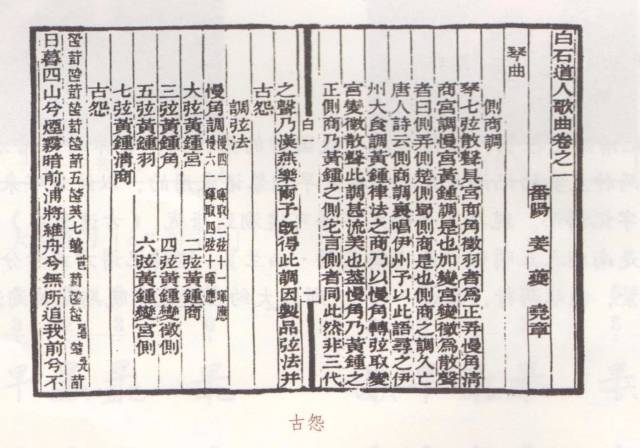 白石道人歌曲卷之
番陽 姜夔 堯章
琴曲
側商調
琴七弦散聲具宮商角徵羽者為正弄慢角清
商宮調慢宮黃鍾調是也加變宮變徵為散聲
者曰側弄側楚側蜀側商是也側商之調久亡
唐人詩云側商調裏唱伊州予以此語尋之伊
州大食調黃鍾律法之商乃以慢角轉弦取變
宮變徵散聲此調甚流美也蓋慢角乃黃鍾之
正側商乃黃鍾之側它言側者同此然非三代
白
之聲乃漢燕樂爾予既得此調因製品弦法并
古怨
調弦法
慢角調慢四
大弦黃鍾宮 二弦黃鍾商
三弦黃鍾角 四弦黃鍾變徵側
五弦黃鍾羽 六弦黃鍾變宮側
七弦黃鍾清商
古怨
日暮四山兮煙霧暗前浦將維舟兮無所追我前兮不
古怨